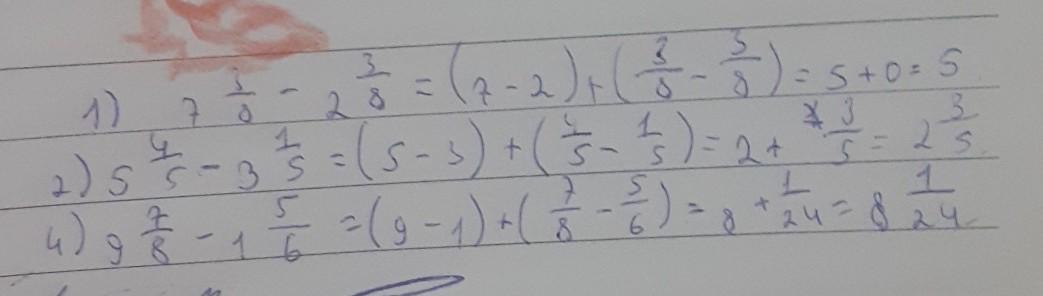 1) 7 3/8 - 2 3/8 = (7 - 2) + (3/8 - 3/8) = 5 + 0 = 5
2) 5 4/5 - 3 1/5 = (5 - 3) + (4/5 - 1/5) = 2 + 3/5 = 2 3/5
4) 9 7/8 - 1 5/6 = (9 - 1) + (7/8 - 5/6) = 8 + 1/24 = 8 1/24